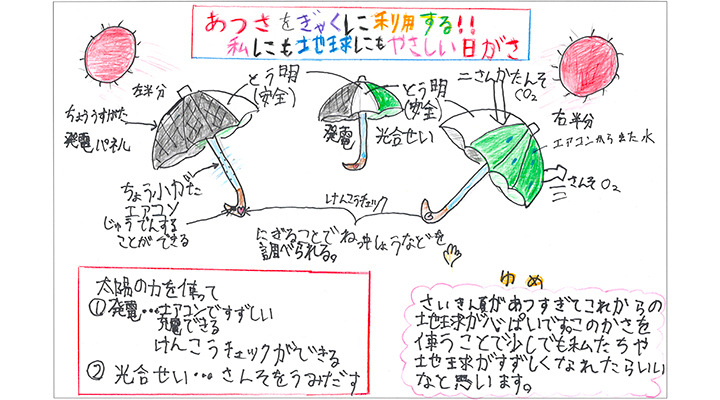 あつさをぎゃくに利用する!!
私にも地球にもやさしい日がさ
左半分
とう明
(安全)
とう明
(安全)
ニさんかたんそ
CO2
右半分
エアコンから出た水
ちょううすがた
発電パネル
発電
光合せい
さんそO2
ちょう小がた
エアコン
じゅうでんする
ことができる
けんこうチェック
にぎることでねっしょうなどを
調べられる。
太陽の力を使って
①発電…エアコンですずしい
発電できる
けんこうチェックができる
②光合せい…さんそをうみだす
ゆめ
さいきん夏があつすぎてこれからの
地球が心ぱいです。このかさを
使うことで少しでも私たちや
地球がすずしくなれたらいい
なと思います。